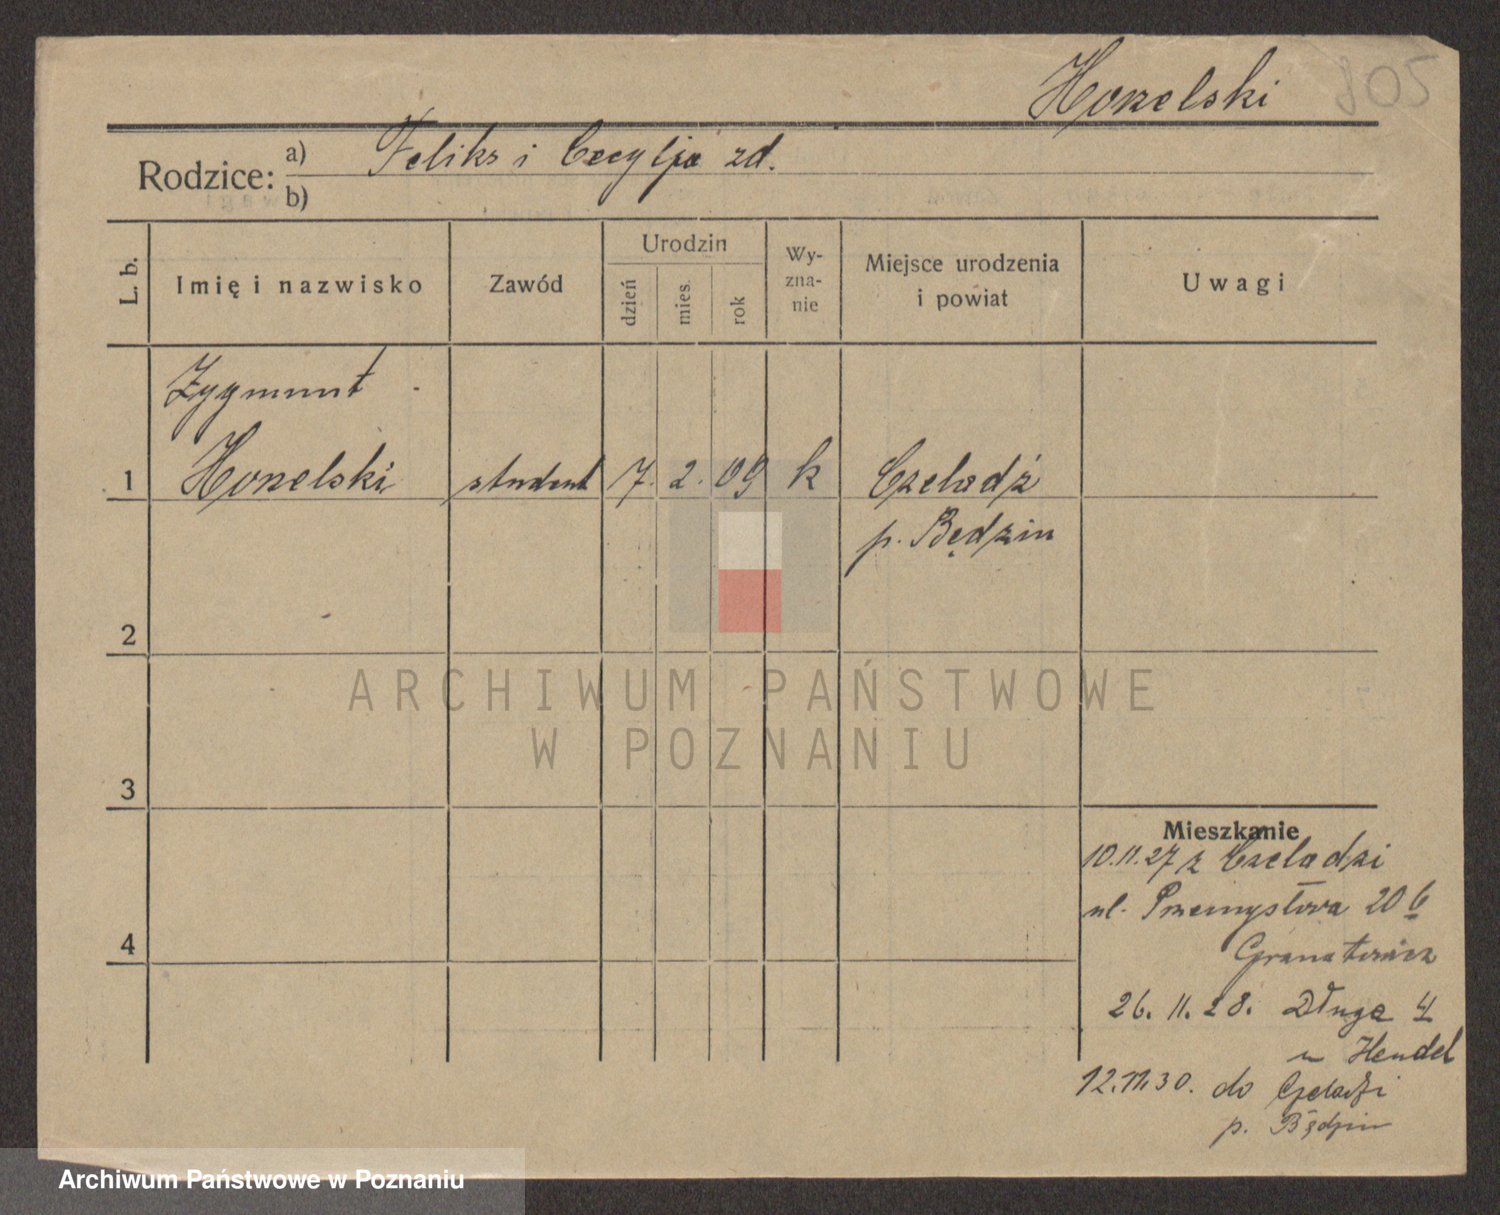 Honelski 805
Rodzice: a) Feliks i Cecylja zd.
b)
L. b. Imię i nazwisko Zawód Urodzin dzień mies. rok Wy-zna-nie Miejsce urodzenia i powiat Uwagi
Zygmunt
1 Honelski student 7. 2. 09 k Czeladź
p. Będzin
2
3
4
Mieszkanie
10.11.27 z Czeladzi
ul. Przemysłowa 20
26. 11. 28. Długa 4
u Hendel
12.11.30. do Czeladzi
p. Będzin
ARCHIWUM PAŃSTWOWE
W POZNANIU
Archiwum Państwowe w Poznaniu